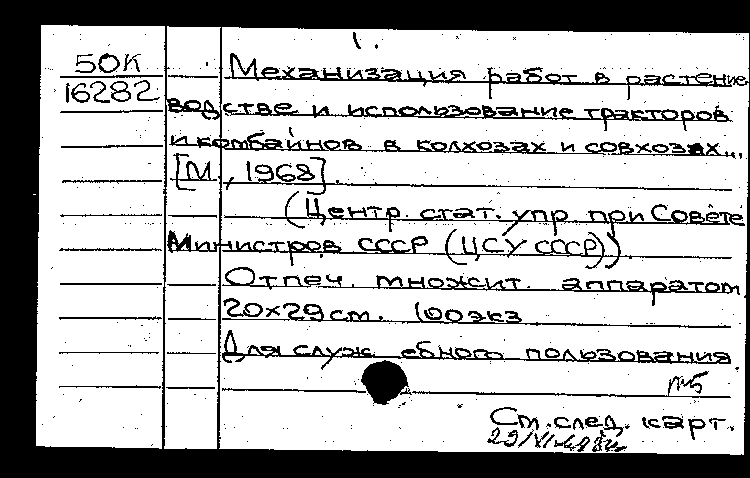 1.
50К Механизация работ в растение
16282 водстве и использование тракторов
и комбайнов в колхозах и совхозах...
[М., 1968].
(Центр. стат. упр. при Совете
Министров СССР (ЦСУ СССР)).
Отпеч. множит. аппаратом.
20х29 см. 100 экз
Для служ ебного пользования.
См. след. карт.